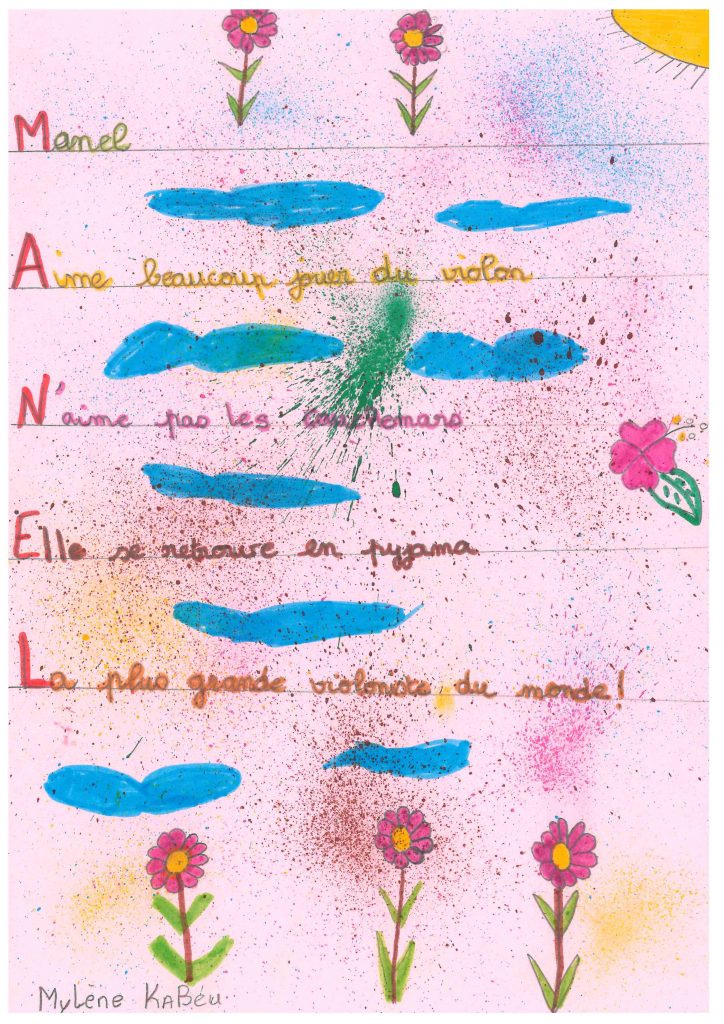 Manel
Aime beaucoup jouer du violon
N'aime pas les cauchemars
Elle se retrouve en pyjama
La plus grande violoniste du monde!
Mylène KaBéu